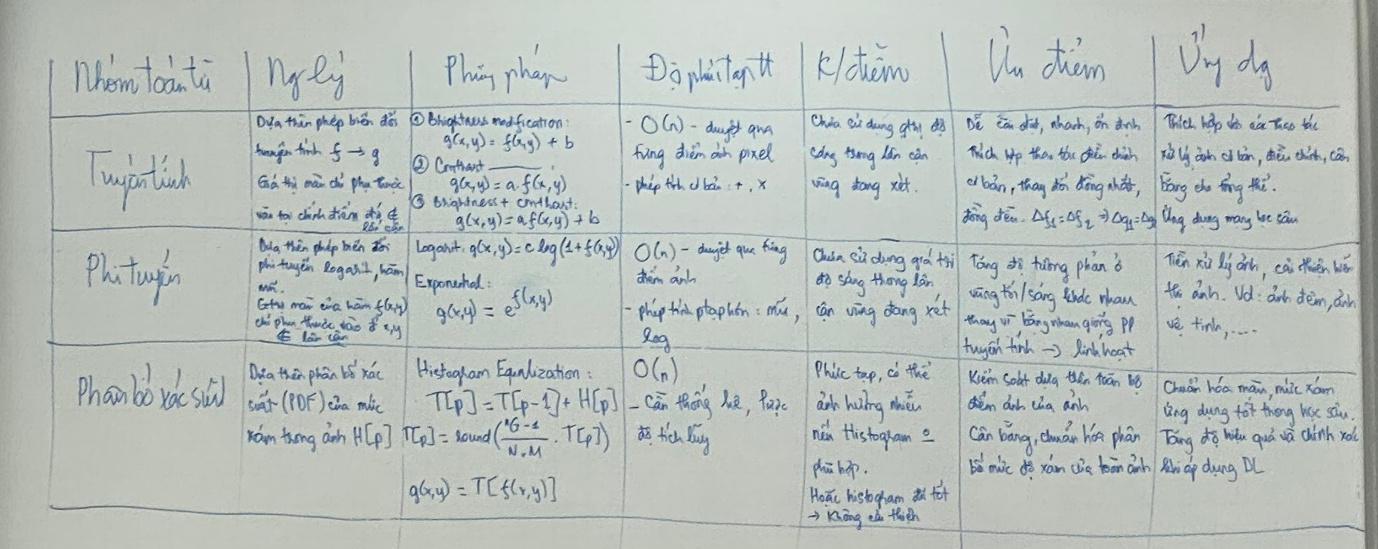 Nhóm toán tử
Ng lý
Phương pháp
Độ phức tạp tt
K/điểm
Ưu điểm
Ứng dg
Tuyến tính
Dựa trên phép biến đổi
tuyến tính f → g
Giá trị màu chỉ phụ thuộc
vào tại chính điểm đó ∉
lân cận
① Brightness modification:
g(x,y) = f(x,y) + b
② Contrast
g(x,y) = a.f(x,y)
③ Brightness + contrast:
g(x,y) = a.f(x,y) + b
- O(n) - duyệt qua
từng điểm ảnh pixel
- phép tính cơ bản: +, ×
Chưa sử dụng gtrị độ
sáng trong lân cận
vùng đang xét.
Dễ cài đặt, nhanh, ổn định
Thích hợp thao tác điều chỉnh
cơ bản, thay đổi đồng nhất,
đồng đều. Δf₁=Δf₂ → Δg₁=Δg₂
Thích hợp với các thao tác
xử lý ảnh cơ bản, điều chỉnh, cân
bằng cho tổng thể.
Ứng dụng mạng học sâu
Phi tuyến
Dựa trên phép biến đổi
phi tuyến logarit, hàm
mũ.
Gtrị màu của hàm f(x,y)
chỉ phụ thuộc vào ở x,y
∉ lân cận
Logarit: g(x,y) = c log(1+f(x,y))
Exponential:
g(x,y) = e^f(x,y)
O(n) - duyệt qua từng
điểm ảnh
- phép tính ptạp hơn: mũ,
log
Chưa sử dụng giá trị
độ sáng trong lân
cận vùng đang xét
Tăng độ tương phản ở
vùng tối/sáng khác nhau
thay vì bằng nhau giống PP
tuyến tính → linh hoạt
Tiền xử lý ảnh, cải thiện hiển
thị ảnh. Vd: ảnh đêm, ảnh
vệ tinh, ....
Phân bố xác suất
Dựa trên phân bố xác
suất (PDF) của mức
xám trong ảnh H[p]
Histogram Equalization:
T[p] = T[p-1] + H[p]
T[p] = round(G-1/N.M . T[p])
g(x,y) = T[f(x,y)]
O(n)
- Cần thống kê, lược
đồ tích lũy
Phức tạp, có thể
ảnh hưởng nhiều
nếu Histogram
phù hợp.
Hoặc histogram đã tốt
→ không cải thiện
Kiểm soát dựa trên toàn bộ
điểm ảnh của ảnh
Cân bằng, chuẩn hóa phân
bố mức độ xám của toàn ảnh
Chuẩn hóa màu, mức xám
ứng dụng tốt trong học sâu.
Tăng độ hiệu quả và chính xác
khi áp dụng DL